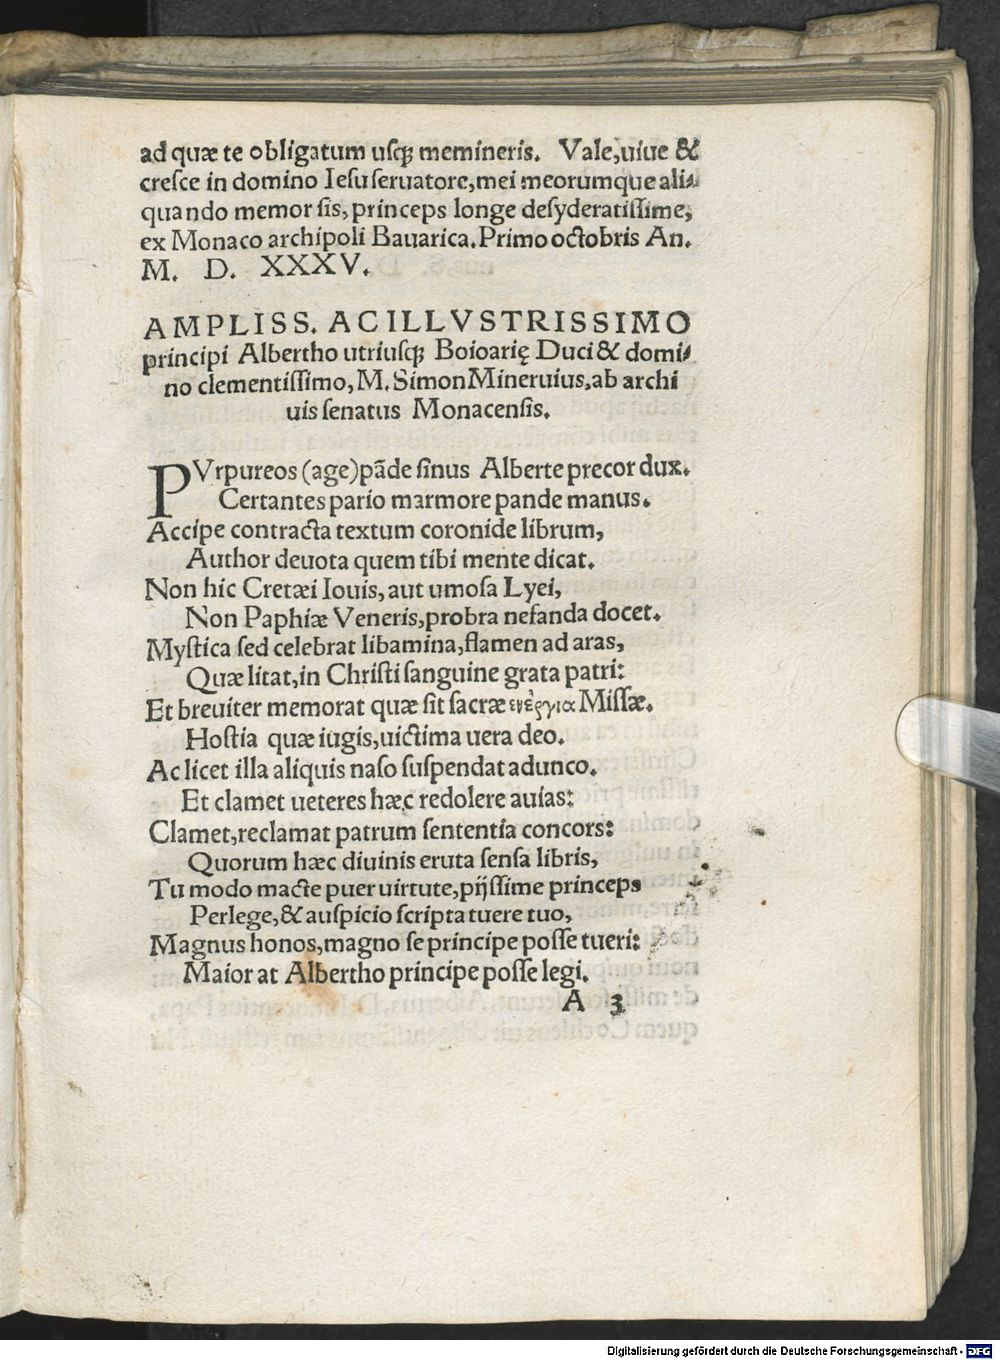 ad quæ te obligatum uſqꝫ memineris. Vale, uiue &
creſce in domino Ieſu ſeruatore, mei meorumque ali-
quando memor ſis, princeps longe deſyderatiſſime,
ex Monaco archipoli Bauarica. Primo octobris An.
M. D. XXXV.
AMPLISS. AC ILLVSTRISSIMO
principi Albertho utriuſqꝫ Boioarię Duci & domi-
no clementiſſimo, M. Simon Mineruius, ab archi
uis ſenatus Monacenſis.
PVrpureos (age) pãde ſinus Alberte precor dux.
Certantes pario marmore pande manus.
Accipe contracta textum coronide librum,
Author deuota quem tibi mente dicat.
Non hic Cretæi Iouis, aut umoſa Lyei,
Non Paphiæ Veneris, probra nefanda docet.
Myſtica ſed celebrat libamina, flamen ad aras,
Quæ litat, in Chriſti ſanguine grata patri:
Et breuiter memorat quæ ſit ſacræ ενέργια Miſſæ.
Hoſtia quæ iugis, uictima uera deo.
Ac licet illa aliquis naſo ſuſpendat adunco.
Et clamet ueteres hæc redolere auias:
Clamet, reclamat patrum ſententia concors:
Quorum hæc diuinis eruta ſenſa libris,
Tu modo macte puer uirtute, pijſſime princeps
Perlege, & auſpicio ſcripta tuere tuo,
Magnus honos, magno ſe principe poſſe tueri:
Maior at Albertho principe poſſe legi.
A 3
Digitalisierung gefördert durch die Deutsche Forschungsgemeinschaft - DFG